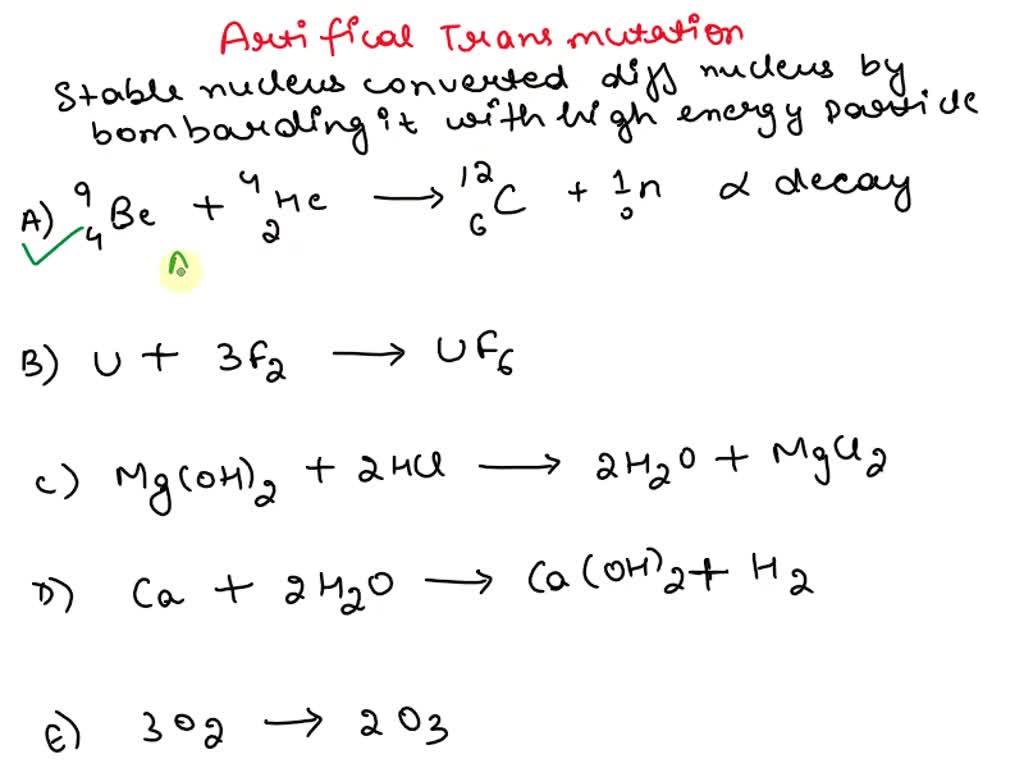 Artifical Transmutation
Stable nucleus converted diff nucleus by
bombarding it with high energy particle
A) ⁹₄Be + ⁴₂He → ¹²₆C + ¹₀n α decay
A
B) U + 3F₂ → UF₆
C) Mg(OH)₂ + 2HCl → 2H₂O + MgCl₂
D) Ca + 2H₂O → Ca(OH)₂ + H₂
E) 3O₂ → 2O₃